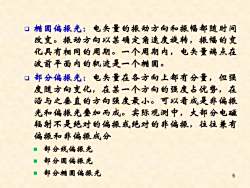 椭圆偏振光：电矢量的振动方向和振幅都随时间
改变。振动方向以某确定角速度旋转，振幅的变
化具有相同的周期。一个周期内，电矢量端点在
波前平面内的轨迹是一个椭圆。
部分偏振光：电矢量在各方向上都有分量，但强
度随方向变化，在某一个方向的强度占优势，在
沿与之垂直的方向强度最小。可以看成是非偏振
光和偏振光叠加而成。实际观测中，大部分电磁
辐射不是绝对的偏振或绝对的非偏振，往往兼有
偏振和非偏振成分
部分线偏振光
部分圆偏振光
部分椭圆偏振光
6